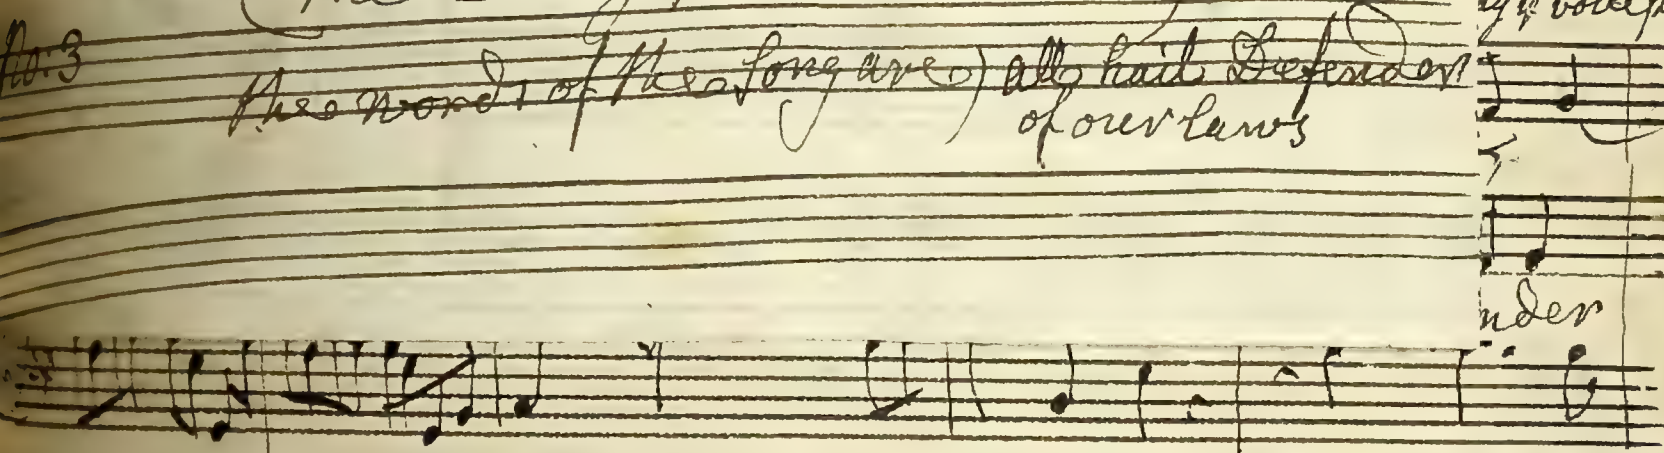 The
No. 3
the words of the Song are) all hail Defender
of our laws
nder